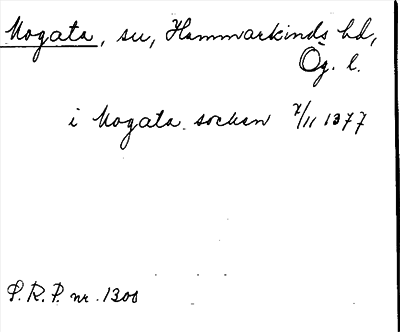 Mogata, sn, Hammarkinds hd,
Ög. l.
i Mogata socken 7/11 1377
S.R.P. nr. 1300